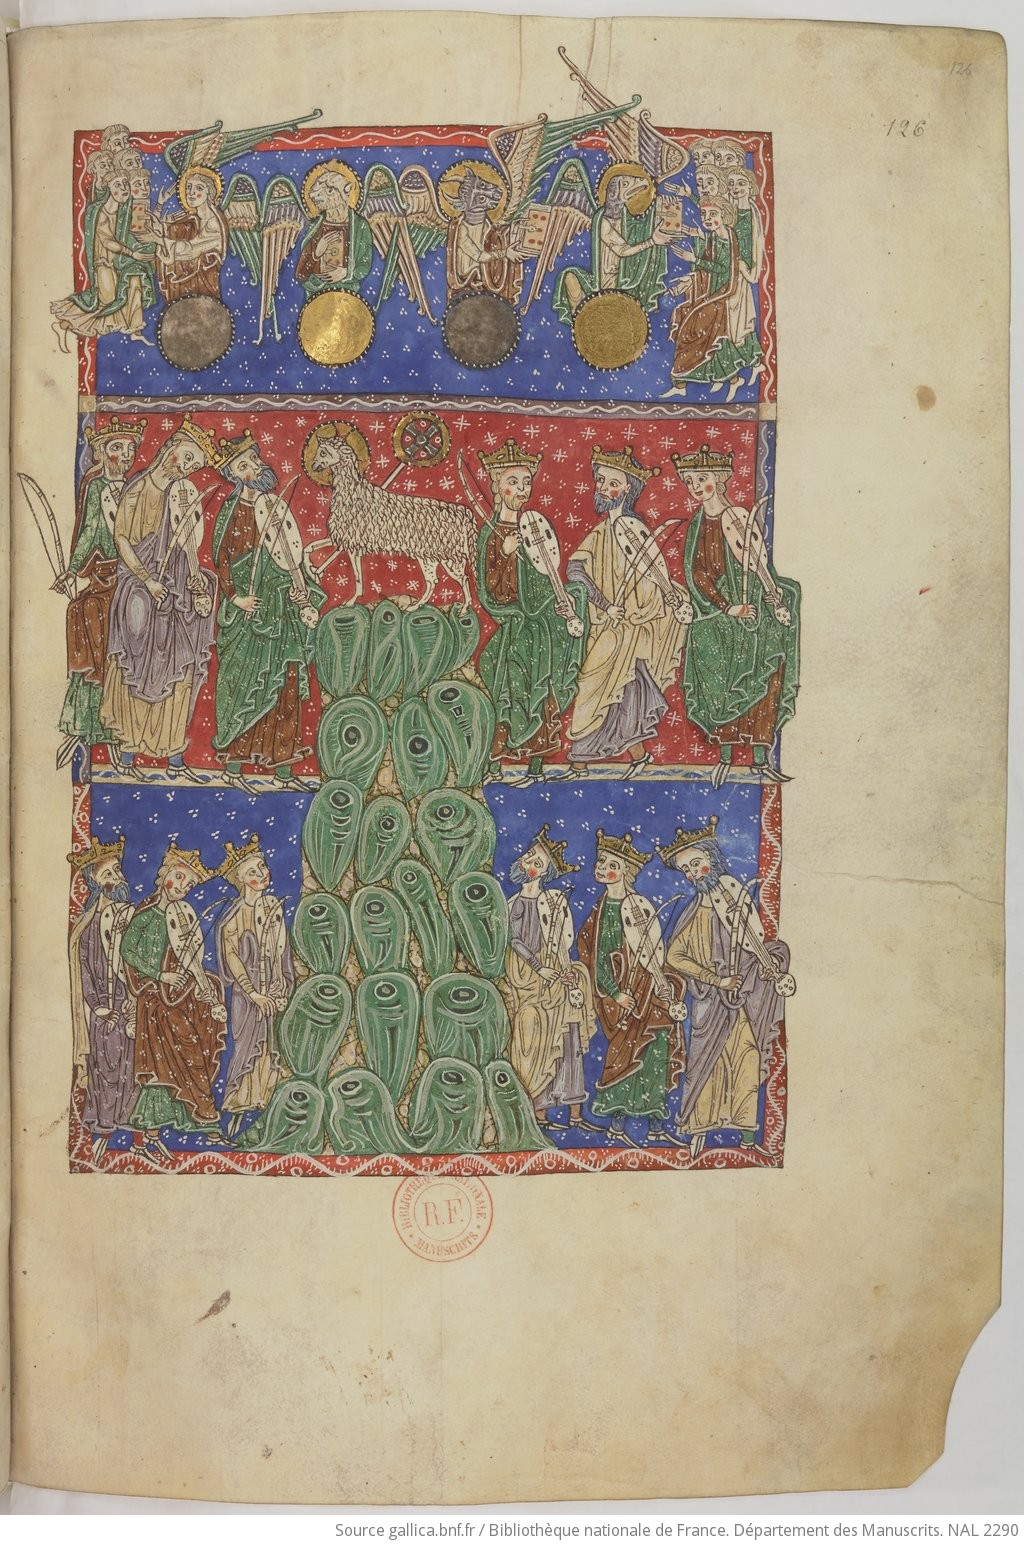 126
126
BIBLIOTHÈQUE NATIONALE
R.F.
MANUSCRITS
Source gallica.bnf.fr / Bibliothèque nationale de France. Département des Manuscrits. NAL 2290